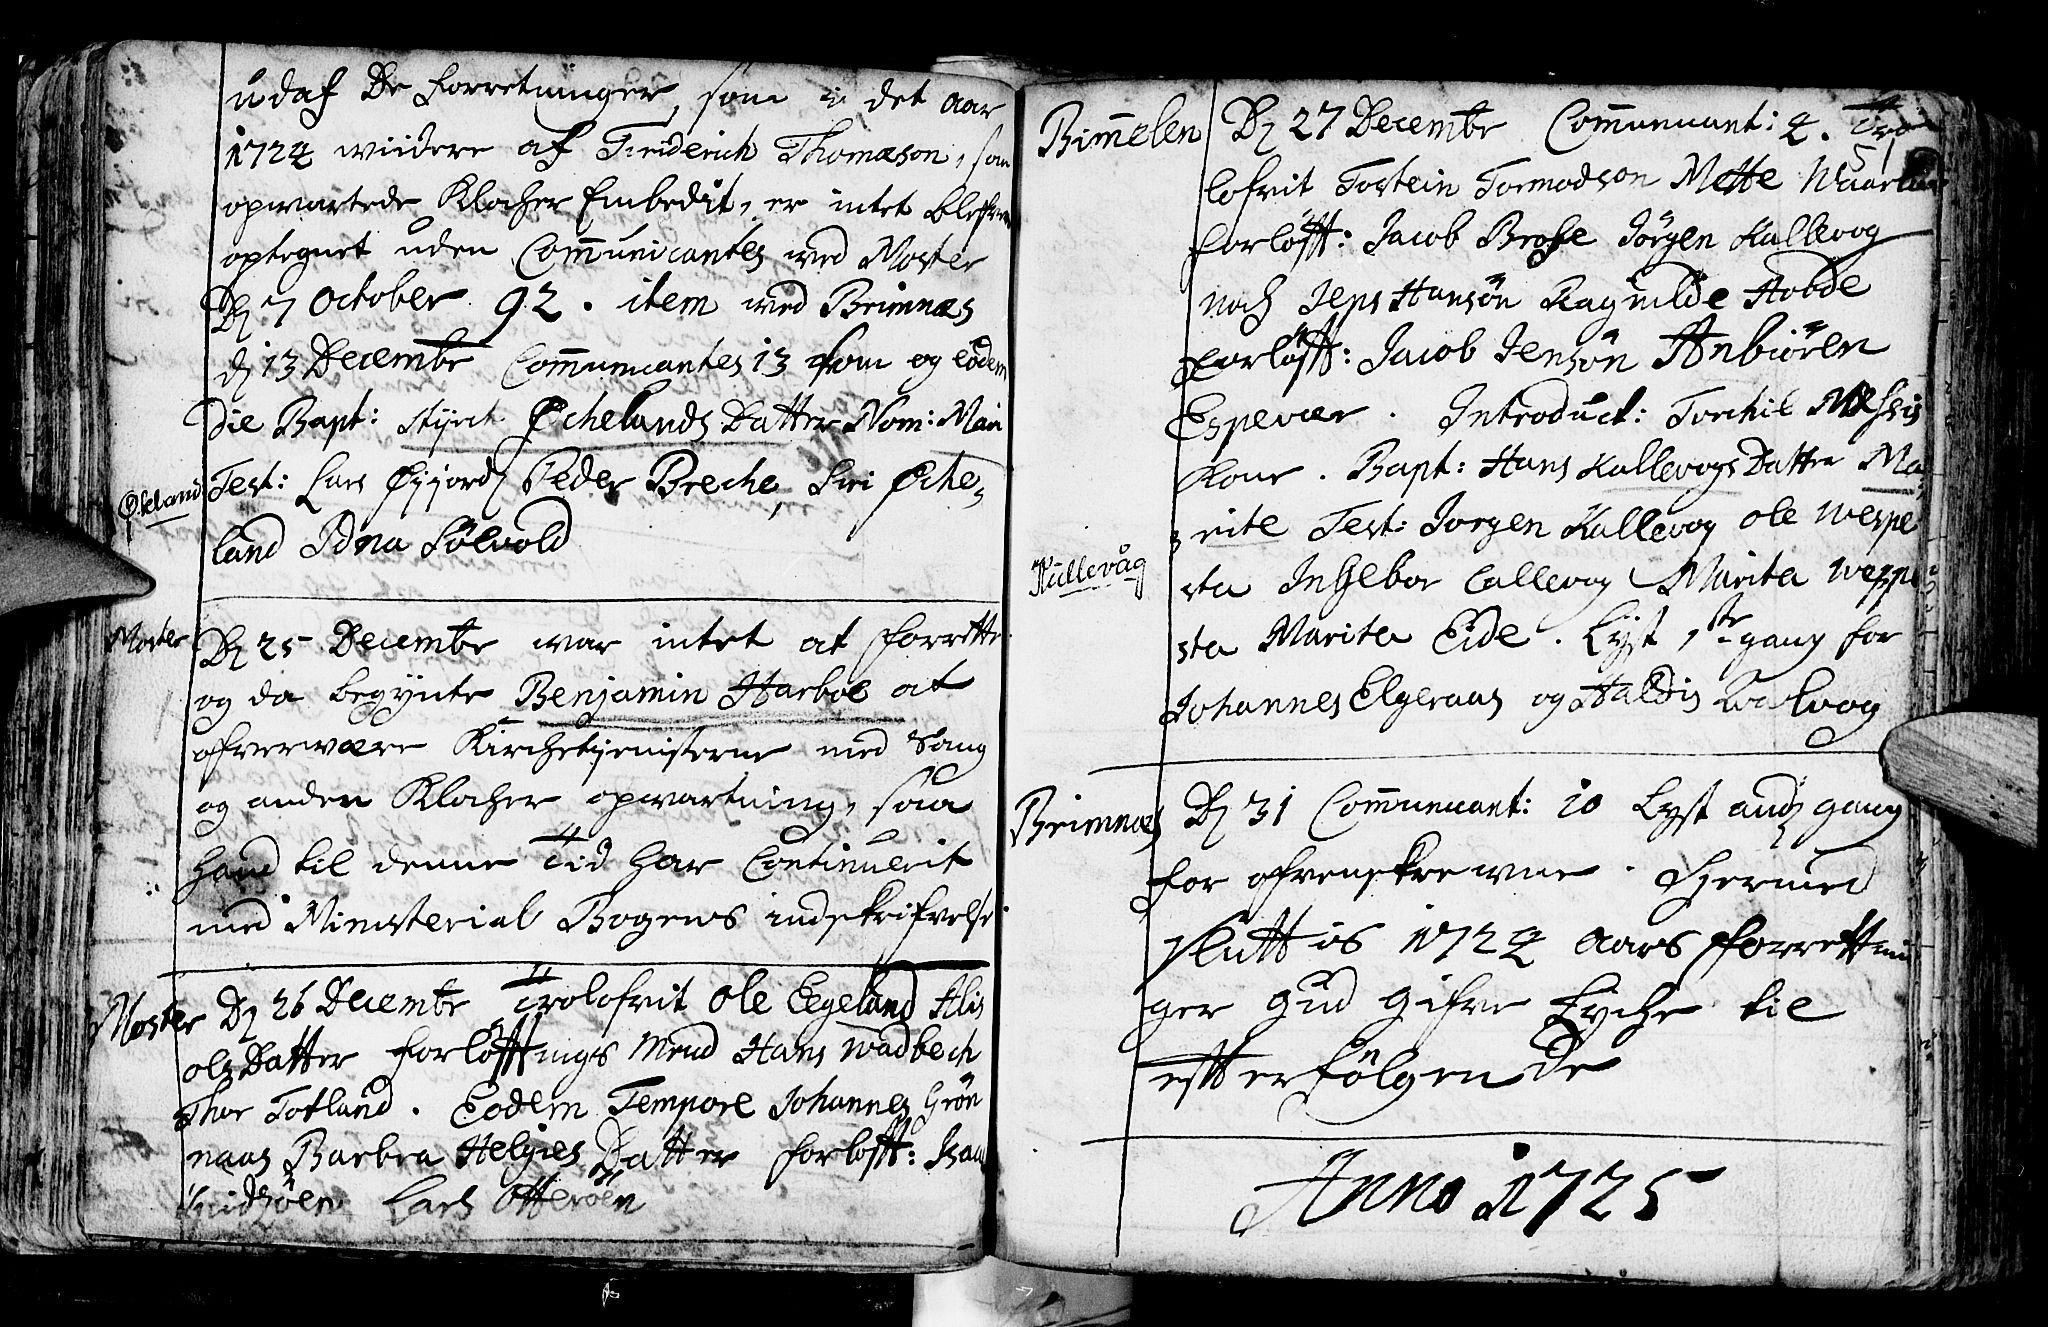 udaf De Forretninger, som i det Aar
1724 wiidere af Friderich Thomæson, som
opwartede Klocher Embedit, er intet blefwen
optegnet uden Communicantes wed Moster
Dj 7 October 92. item wed Brimnæs
dj 13 Decembr Communicantes 13 from og eodem
die Bapt: Styrch Øchelands Datter Nom: Mari
Økeland
Test: Lars Øjjord Peder Breche, Siri Øche-
land Adna Sølvold
Moster
Dj 25 Decembr war intet at forrette
og da begynte Benjamin Harboe at
ofverwære Kirchetjenisterne med Sang
og anden Klocher opwartning, saa
hand til denne Tid har Continuerit
med Ministerial Bogens indskrifvelse
Moster
Dj 26 Decembr Trolofvit Ole Eegeland Alis
Ols Datter forløfftnings Mend Hans Wadbech
Thor Totland. Eodem Tempore Johannes Grøn
naas Barbra Helgies Datter forløfft: Isaac
Lars Otterøen
Bimmelen
Dj 27 Decembr Communicant: 4. Tro
51
lofvit Tostein Tormodson Mette
forløfft: Jacob Brose Jørgen Kallevog
noch Jens Hansøn Ragnilde Hovde
forløfft: Jacob Jensøn Anbiøren
Espevær. Introduct: Torchil
Kone. Bapt: Hans Kallevogs Datter Ma
Kullevåg
grite Test: Jørgen Kallevog Ole Wespe
sta Ingebor Callevog Marita Weppe
sta Marita Eide. Lyst 1ste gang for
Johannes Elgeraas og Haldis Kalvog
Brimnæs
Dj 31 Communicant: 10 Lyst andj gang
for ofvenskrewne. Hermed
sluttis 1724 Aars Forrettnin
ger Gud gifve Lyche til
efterfølgende
Anno 1725